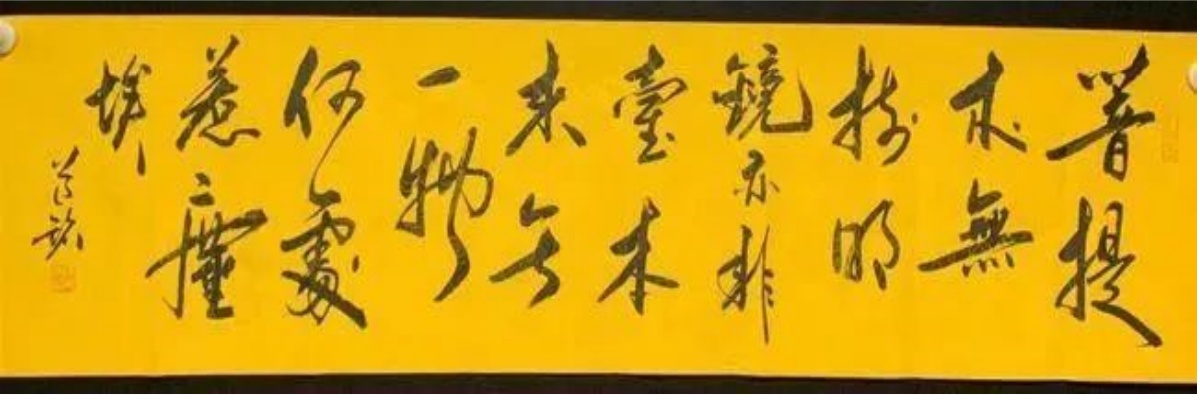 菩提
本無
樹明
鏡亦非
臺本
来无
一物
何處
惹塵
埃